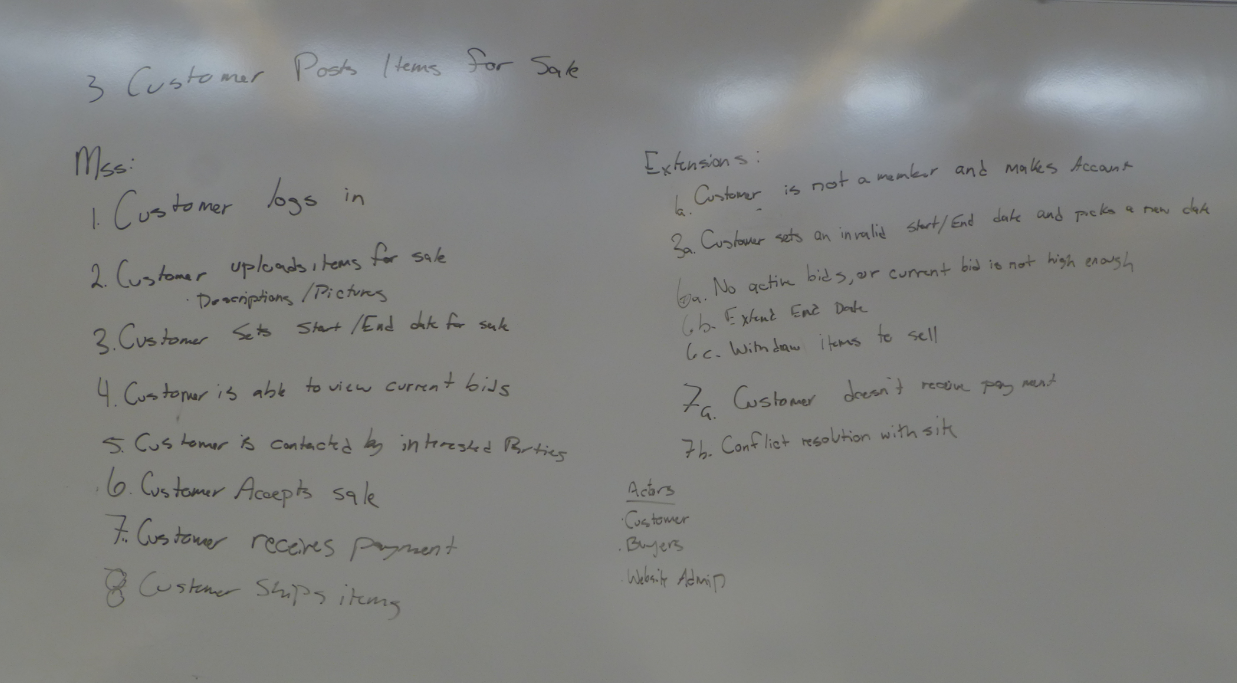 3 Customer Posts Items for Sale
Mss:
1. Customer logs in
2. Customer uploads items for sale
· Descriptions / Pictures
3. Customer Sets Start / End date for sale
4. Customer is able to view current bids
5. Customer is contacted by interested Parties
6. Customer Accepts sale
7. Customer receives payment
8 Customer Ships items
Extensions:
1a. Customer is not a member and makes Account
3a. Customer sets an invalid start/End date and picks a new date
6a. No active bids, or current bid is not high enough
6b. Extend End Date
6c. Withdraw items to sell
7a. Customer doesn't receive payment
7b. Conflict resolution with site
Actors
· Customer
· Buyers
· Website Admin